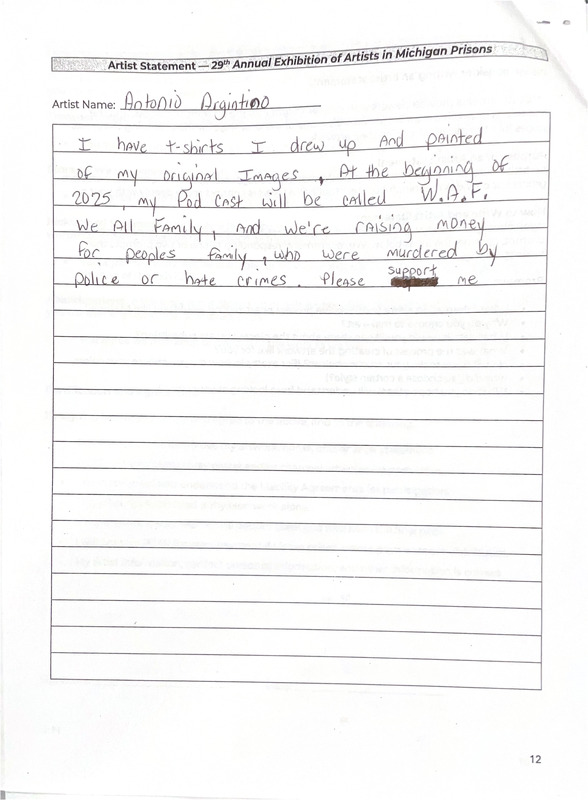 Artist Statement — 29th Annual Exhibition of Artists in Michigan Prisons
Artist Name: Antonio Argintino
I have t-shirts I drew up And painted
of my original Images, At the beginning of
2025, my Pod Cast will be called W.A.F.
We All Family, And we're raising money
for peoples family, who were murdered by
Police or hate crimes. Please support me
12